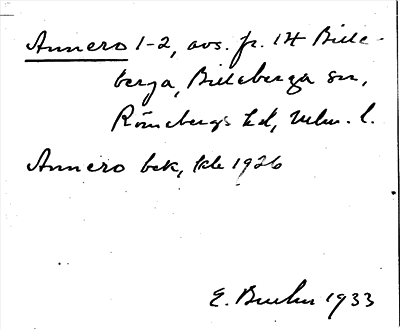 Annero 1-2, avs. fr. 14 Bille-
berga, Billeberga sn,
Rönnebergs hd, Mlm. l.
Annero bek, kbr 1926
E. Bruhn 1933